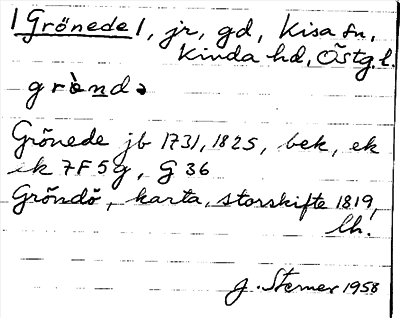 | Grönede |, jr, gd, Kisa sn,
Kinda hd, Östg.l.
grö̀ndə
Grönede jb 1731, 1825, bek, ek
ek 7F5g, G 36
Gröndö, karta, storskifte 1819,
lh.
J. Sterner 1958